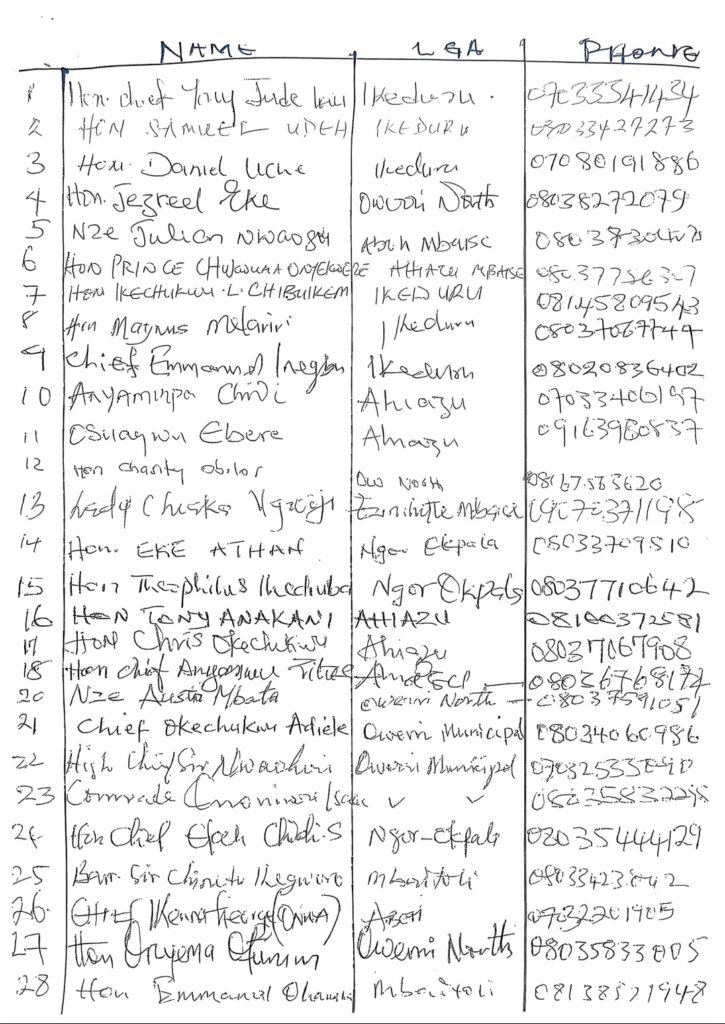 NAME LGA PHONE
1 Hon. Chief Tony Jude Ikeduru. 07033541434
2 HON SAMUEL UDEH IKEDURU 08033427273
3 Hon. Daniel Uche Ikeduru 07080191886
4 Hon. Jezreel Eke Owerri North 08038272079
5 Nze Julian Nwaogu Aboh Mbaise
6 HON PRINCE CHUKWUMA ONYEKWERE AHIAZU MBAISE
7 HON IKECHUKWU .L. CHIBUIKEM IKEDURU 08145809543
8 Hon Magnus Ikeduru 08037067744
9 Chief Emmanuel Ikeduru 08020836402
10 Chidi Ahiazu 07033406197
11 Osuagwu Ebere Ahiazu 09163980837
12 Hon Charity Obilor Ow North 08167583620
13 Lady Chiaka Ezinihitte Mbaise 09070371198
14 Hon. EKE ATHAN Ngor Okpala 08033709510
15 Hon Theophilus Ngor Okpala 08037710642
16 HON TONY ANAKANI AHIAZU 08100372581
17 HON Chris Okechukwu Ahiazu 08037067908
18 Hon Chief 08036768172
20 Nze Austin Mbata Owerri North 08037591051
21 Chief Okechukwu Adiele Owerri Municipal 08034060986
22 High Chief Sir Owerri Municipal
23 Comrade ✓ ✓
24 Hon Chief Chidi-S Ngor-Okpala 08035444129
25 Barr. Sir Mbaitoli
26 Chief Aboh 07032201905
27 Hon Onyema Owerri North 08035833005
28 Hon Emmanuel Mbaitoli 08138521948